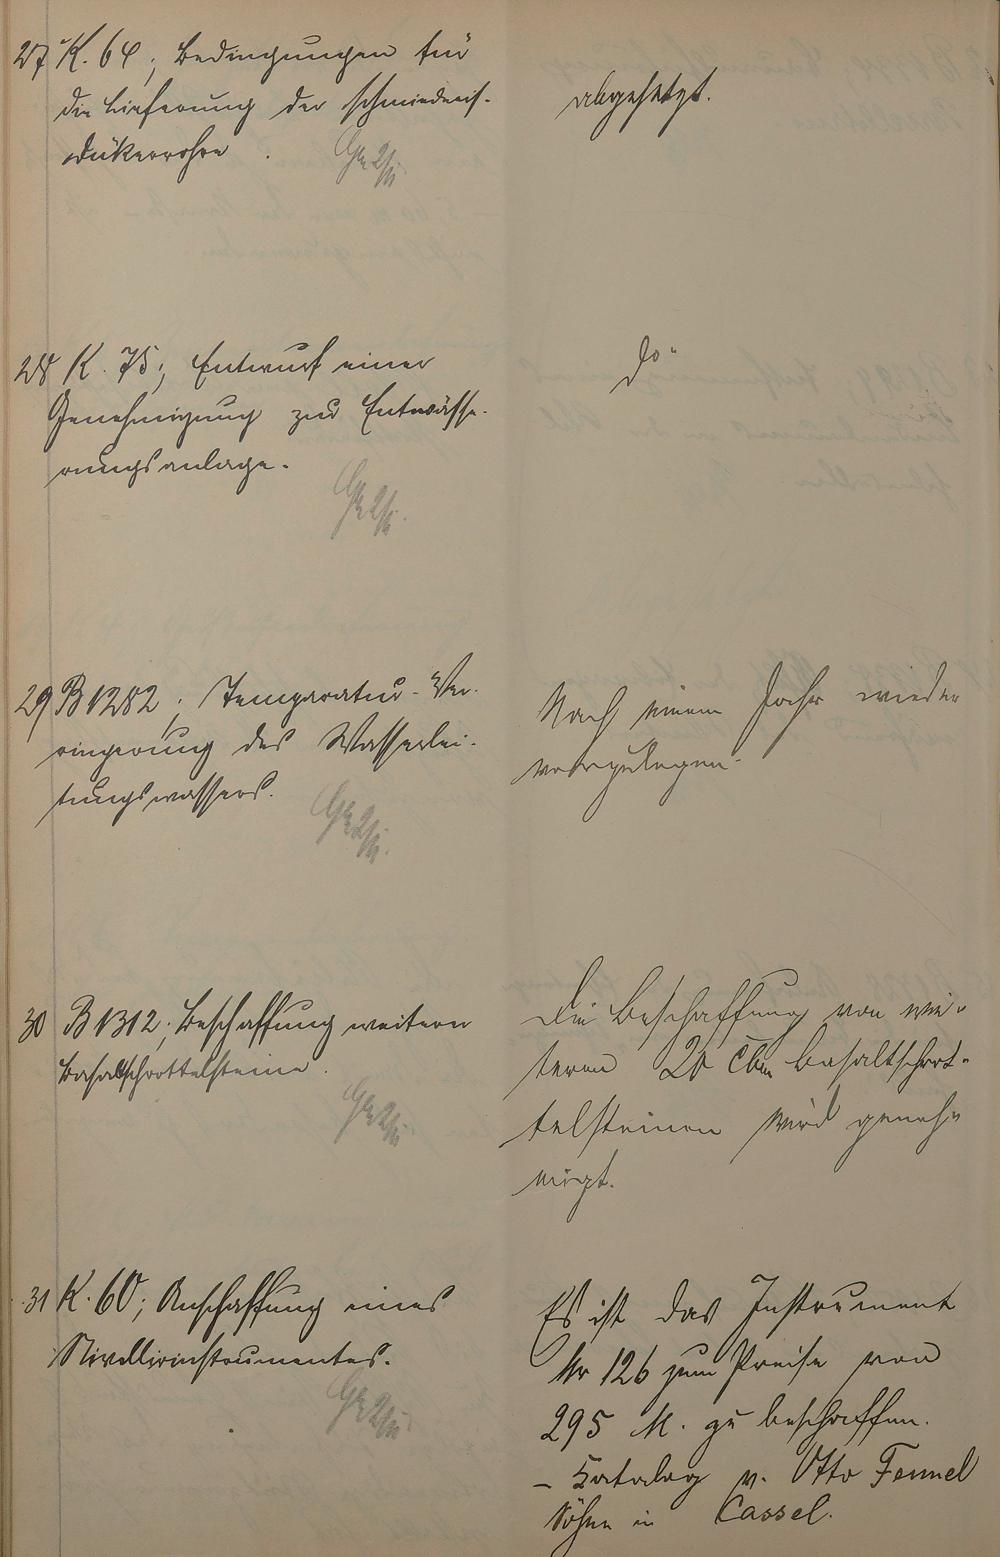 27 K. 64; Bedingungen für
die Lieferung der schmiedeeis.
Dükerrohre.
abgesetzt.
28 K. 75; Entwurf einer
Genehmigung zur Entwässe-
rungsanlage.
do
29 B 1282; Temperatur-Ver-
ringerung des Wasserlei-
tungswassers.
Nach einem Jahr wieder
vorzulegen.
30 B 1312; Beschaffung weitern
Basaltschrottelsteine.
Die Beschaffung von wei-
teren 20 Cbm Basaltschrot-
telsteinen wird geneh-
migt.
31 K. 60; Anschaffung eines
Nivellirinstrumentes.
Es ist das Instrument
Nr 126 zum Preise von
295 M. zu beschaffen.
- Katalog v. Otto Fennel
Söhne in Cassel.